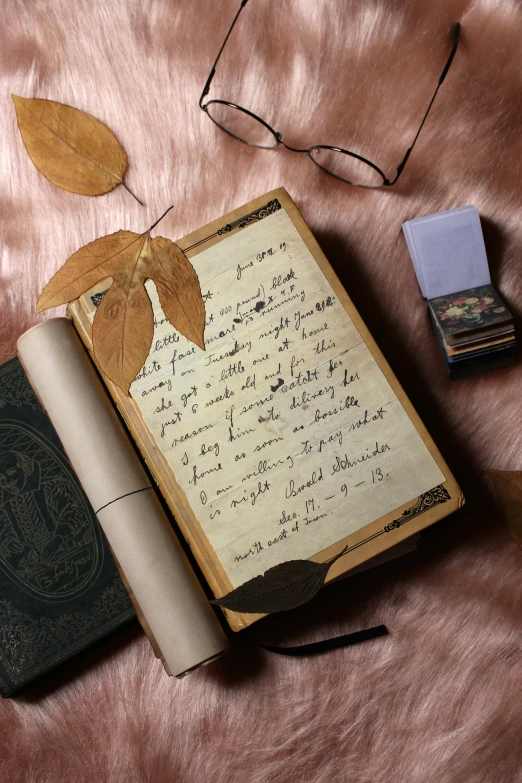 June 30th. 19
little 400 pound) black
white face mare running
away on Tuesday night June 3
she got a little one at home
just 6 weeks old and for this
reason if some catcht her
I beg him to delivery her
home as soon as bossible
I am willing to pay what
is night
Oswald Schneider
Sec. 17. – 9 – 13.
north east of Town.